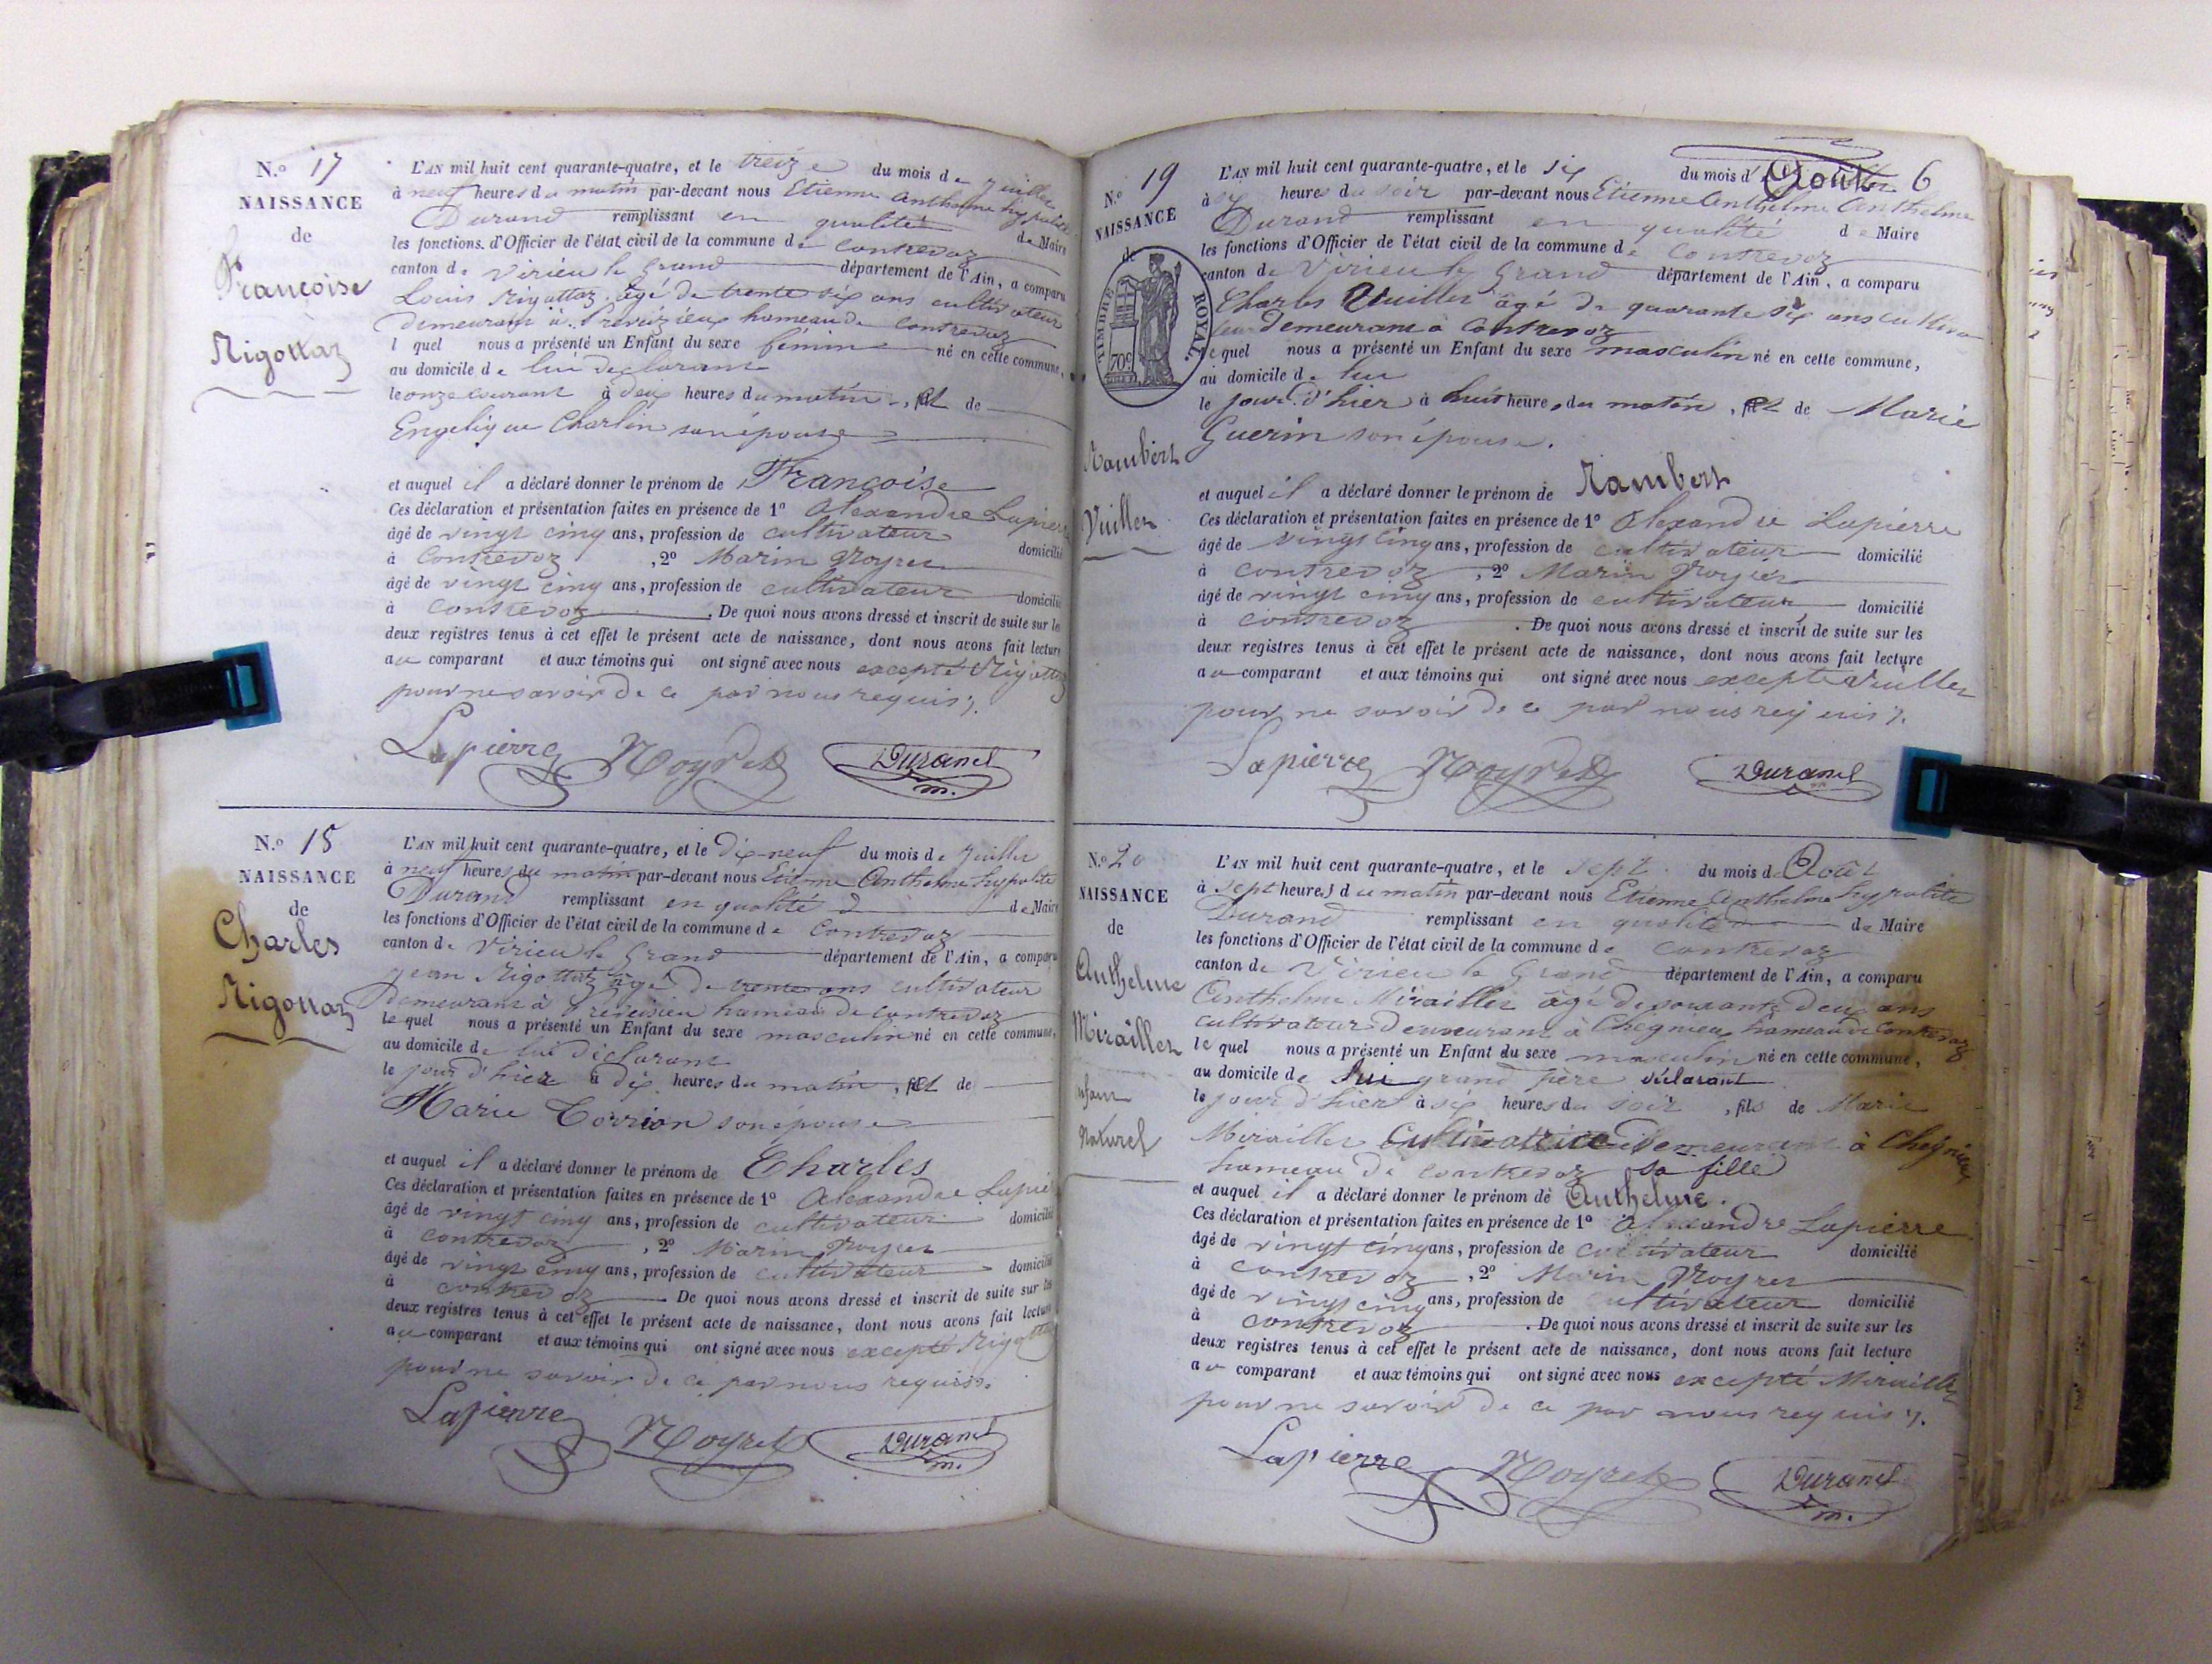 N.o 17
NAISSANCE
de
Françoise
Rigottaz
L'AN mil huit cent quarante-quatre, et le treize du mois de Juillet
à neuf heures du matin par-devant nous Etienne Anthelme hypolite
Durand remplissant en qualité de Maire
les fonctions d'Officier de l'état civil de la commune de Contrevoz
canton de Virieu le Grand département de l'Ain, a comparu
Louis Rigottaz âgé de trente six ans cultivateur
demeurant à hameau de Contrevoz
l quel nous a présenté un Enfant du sexe féminin né en cette commune,
au domicile de lui déclarant
le onze courant à deux heures du matin, et de
Engelique Charlin son épouse
et auquel il a déclaré donner le prénom de Françoise
Ces déclaration et présentation faites en présence de 1o Alexandre Lapierre
âgé de vingt cinq ans, profession de cultivateur domicilié
à Contrevoz, 2o Marin Noyret
âgé de vingt cinq ans, profession de cultivateur domicilié
à Contrevoz. De quoi nous avons dressé et inscrit de suite sur les
deux registres tenus à cet effet le présent acte de naissance, dont nous avons fait lecture
au comparant et aux témoins qui ont signé avec nous excepté Rigottaz
pour ne savoir de ce par nous requis.
Lapierre Noyret Durand
m.
N.o 18
NAISSANCE
de
Charles
Rigottaz
L'AN mil huit cent quarante-quatre, et le dix-neuf du mois de Juillet
à neuf heures du matin par-devant nous Etienne Anthelme hypolite
Durand remplissant en qualité de Maire
les fonctions d'Officier de l'état civil de la commune de Contrevoz
canton de Virieu le Grand département de l'Ain, a comparu
Jean Rigottaz âgé de trente ans cultivateur
demeurant à hameau de Contrevoz
le quel nous a présenté un Enfant du sexe masculin né en cette commune,
au domicile de lui déclarant
le jour d'hier à dix heures du matin, et de
Marie son épouse
et auquel il a déclaré donner le prénom de Charles
Ces déclaration et présentation faites en présence de 1o Alexandre Lapierre
âgé de vingt cinq ans, profession de cultivateur domicilié
à Contrevoz, 2o Marin Noyret
âgé de vingt cinq ans, profession de cultivateur domicilié
à Contrevoz. De quoi nous avons dressé et inscrit de suite sur les
deux registres tenus à cet effet le présent acte de naissance, dont nous avons fait lecture
au comparant et aux témoins qui ont signé avec nous excepté Rigottaz
pour ne savoir de ce par nous requis.
Lapierre Noyret Durand
m.
6
N.o 19
NAISSANCE
de
TIMBRE ROYAL.
70c
Rambert
Vuillez
L'AN mil huit cent quarante-quatre, et le six du mois d'Août
à six heures du soir par-devant nous Etienne Anthelme Anthelme
Durand remplissant en qualité de Maire
les fonctions d'Officier de l'état civil de la commune de Contrevoz
canton de Virieu le Grand département de l'Ain, a comparu
Charles Vuillez âgé de quarante six ans cultiva
teur demeurant à Contrevoz
le quel nous a présenté un Enfant du sexe masculin né en cette commune,
au domicile de lui
le jour d'hier à huit heures du matin, et de Marie
Guerin son épouse.
et auquel il a déclaré donner le prénom de Rambert
Ces déclaration et présentation faites en présence de 1o Alexandre Lapierre
âgé de vingt cinq ans, profession de cultivateur domicilié
à Contrevoz, 2o Marin Noyret
âgé de vingt cinq ans, profession de cultivateur domicilié
à Contrevoz. De quoi nous avons dressé et inscrit de suite sur les
deux registres tenus à cet effet le présent acte de naissance, dont nous avons fait lecture
au comparant et aux témoins qui ont signé avec nous excepté Vuillez
pour ne savoir de ce par nous requis.
Lapierre Noyret Durand
N.o 20
NAISSANCE
de
Anthelme
Miraillez
enfant
Naturel
L'AN mil huit cent quarante-quatre, et le sept du mois de Août
à sept heures du matin par-devant nous Etienne Anthelme hypolite
Durand remplissant en qualité de Maire
les fonctions d'Officier de l'état civil de la commune de Contrevoz
canton de Virieu le Grand département de l'Ain, a comparu
Anthelme Miraillez âgé de soixante deux ans
cultivateur demeurant à Chegnieu hameau de Contrevoz
le quel nous a présenté un Enfant du sexe masculin né en cette commune,
au domicile de lui grand père déclarant
le jour d'hier à six heures du soir, fils de Marie
Miraillez Cultivatrice demeurant à Chegnieu
hameau de Contrevoz sa fille
et auquel il a déclaré donner le prénom de Anthelme.
Ces déclaration et présentation faites en présence de 1o Alexandre Lapierre
âgé de vingt cinq ans, profession de cultivateur domicilié
à Contrevoz, 2o Marin Noyret
âgé de vingt cinq ans, profession de cultivateur domicilié
à Contrevoz. De quoi nous avons dressé et inscrit de suite sur les
deux registres tenus à cet effet le présent acte de naissance, dont nous avons fait lecture
au comparant et aux témoins qui ont signé avec nous excepté Miraillez
pour ne savoir de ce par nous requis.
Lapierre Noyret Durand
m.